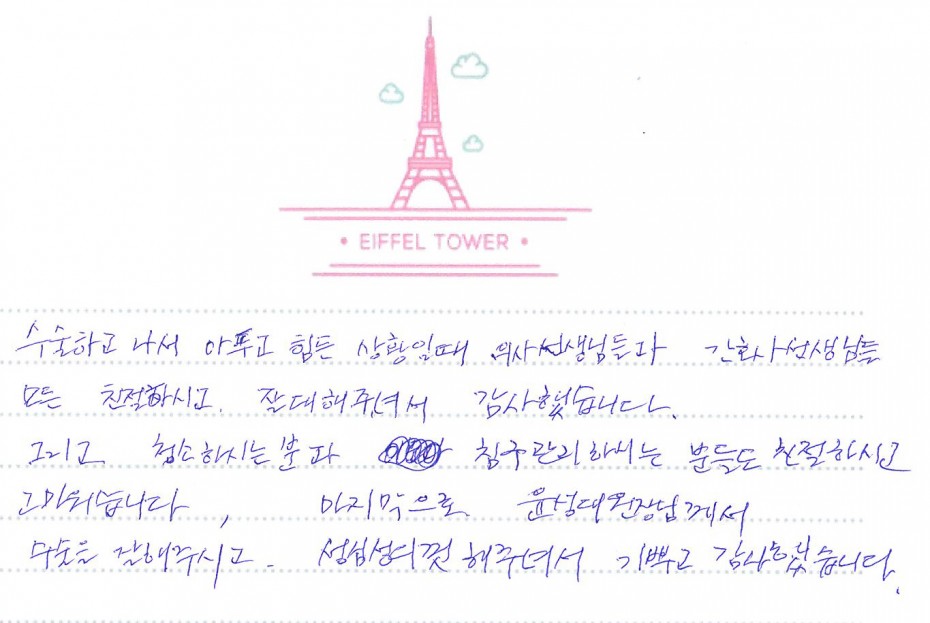 • EIFFEL TOWER •
수술하고 나서 아푸고 힘든 상황일때 의사선생님들과 간호사선생님들
모든 친절하시고. 잘대해주셔서 감사했습니다.
그리고 청소하시는분과 침구관리하시는 분들도 친절하시고
고마워습니다, 마지막으로 윤성대원장님께서
수술을 잘해주시고. 성심성의껏 해주셔서 기쁘고 감사했습니다.